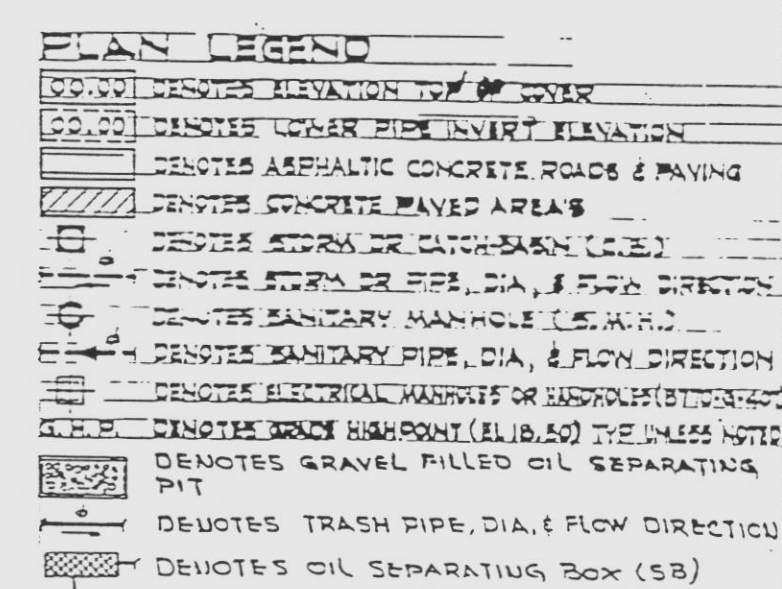 PLAN LEGEND
00.00 DENOTES ELEVATION TOP OF COVER
00.00 DENOTES LOWER PIPE INVERT ELEVATION
DENOTES ASPHALTIC CONCRETE ROADS & PAVING
DENOTES CONCRETE PAVED AREA'S
DENOTES STORM DR CATCH-BASIN (C.B.)
DENOTES STORM DR PIPE, DIA, & FLOW DIRECTION
DENOTES SANITARY MANHOLE (S.M.H.)
DENOTES SANITARY PIPE, DIA, & FLOW DIRECTION
DENOTES ELECTRICAL MANHOLES OR HANDHOLES
G.H.P. DENOTES GRADE HIGH POINT (EL 18.50) TYP UNLESS NOTED
DENOTES GRAVEL FILLED OIL SEPARATING
PIT
DENOTES TRASH PIPE, DIA, & FLOW DIRECTION
DENOTES OIL SEPARATING BOX (SB)